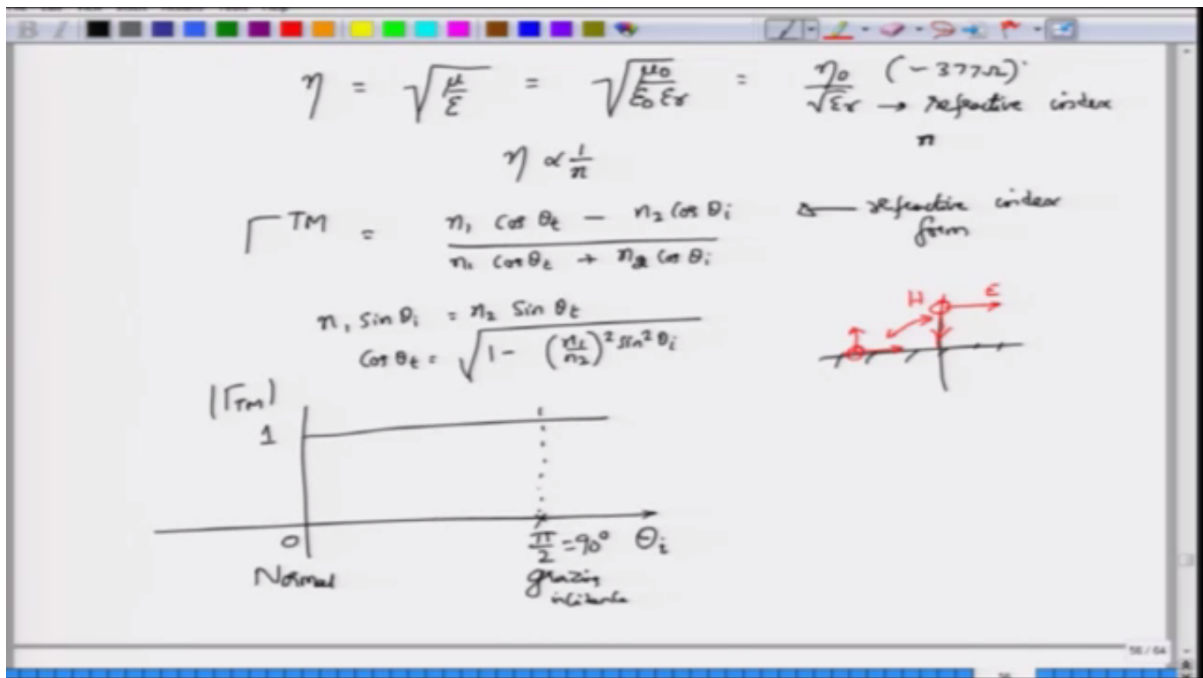 η = √(μ/ε) = √(μ0/(ε0 εr)) = η0/√εr (~377Ω)
→ refractive index
n
η ∝ 1/n
Γ TM = (n1 cos θt − n2 cos θi)/(n1 cos θt + n2 cos θi) ← refractive index form
H E
n1 sin θi = n2 Sin θt
Cos θt = √(1 − (n1/n2)² sin² θi)
|ΓTM|
1
0 π/2 = 90° θi
Normal grazing
incidence
56 / 64